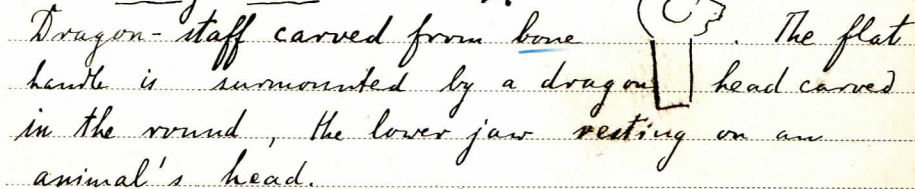 Dragon-staff carved from bone . The flat
handle is surmounted by a dragon head carved
in the round, the lower jaw resting on an
animal's head.